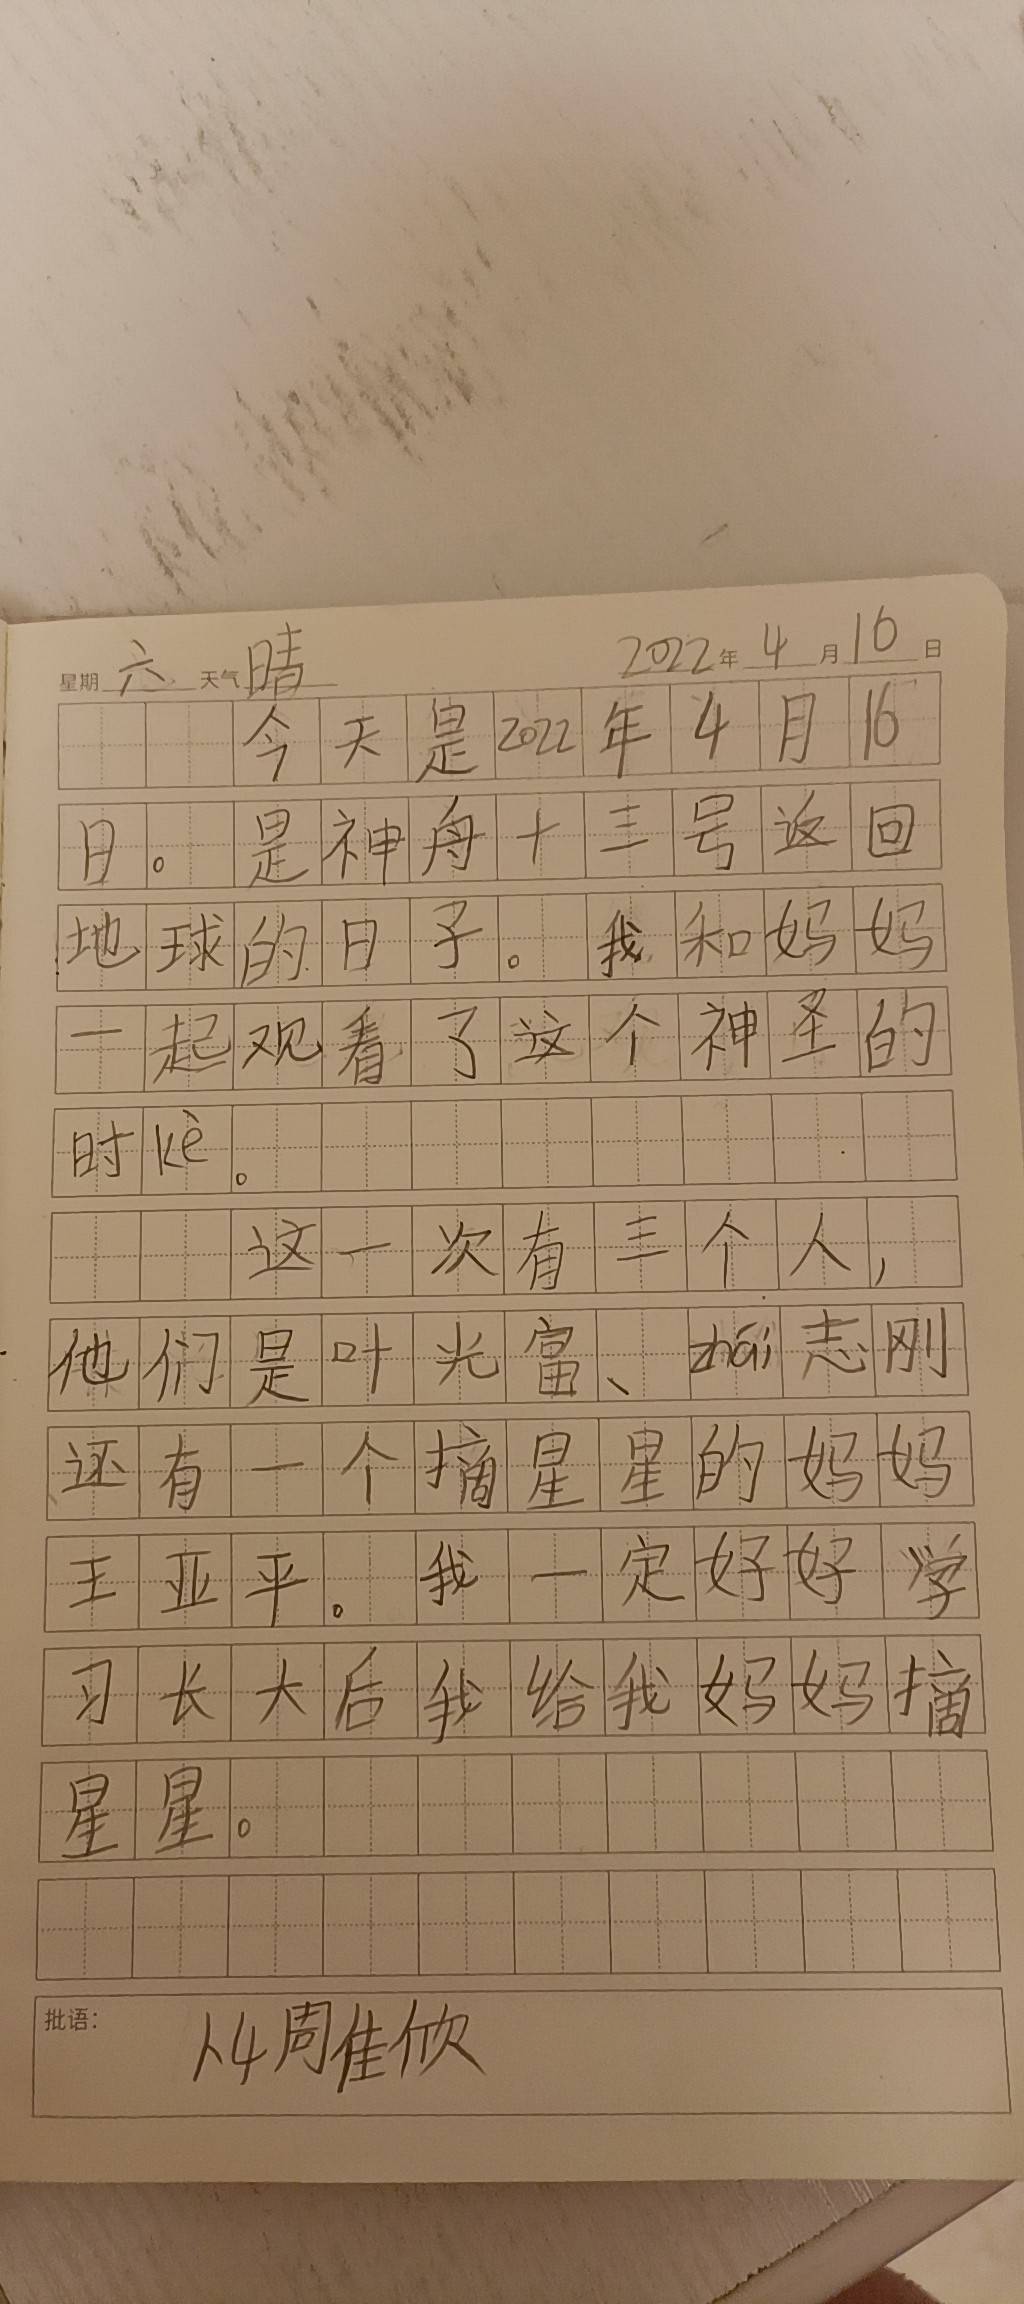 星期 六 天气 晴 2022年 4 月 16 日
今天是2022年4月16
日。是神舟十三号返回
地球的日子。我和妈妈
一起观看了这个神圣的
时kè。
这一次有三个人，
他们是叶光富、zhái志刚
还有一个摘星星的妈妈
王亚平。我一定好好学
习长大后我给我妈妈摘
星星。
批语： 周佳欣